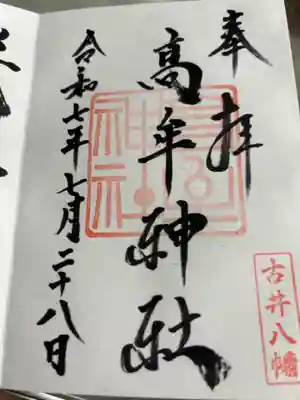 奉拝
高牟神社
令和七年七月二十八日
古井八幡